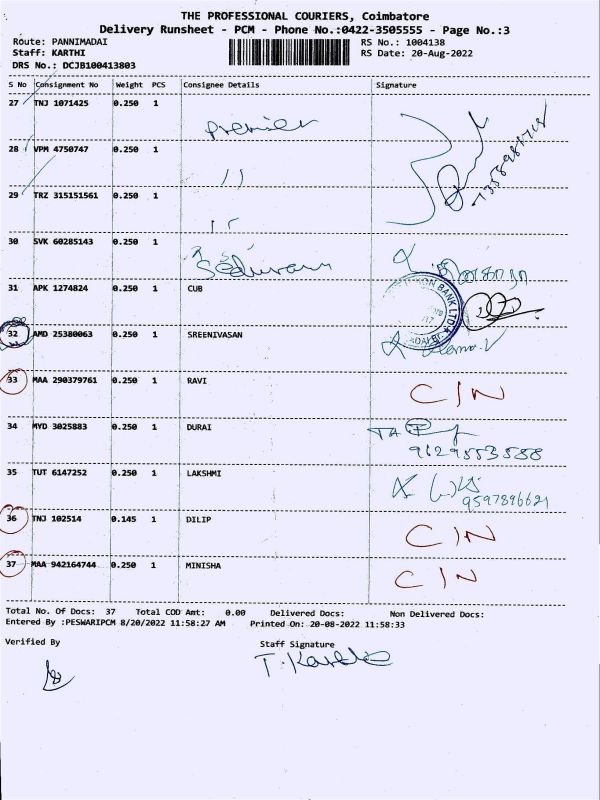 THE PROFESSIONAL COURIERS, Coimbatore
Delivery Runsheet - PCM - Phone No.:0422-3505555 - Page No.:3
Route: PANNIMADAI RS No.: 1004138
Staff: KARTHI RS Date: 20-Aug-2022
DRS No.: DCJB100413803
S No Consignment No Weight PCS Consignee Details Signature
27 TNJ 1071425 0.250 1 Premier
28 VPM 4750747 0.250 1 11
29 TRZ 315151561 0.250 1 11
30 SVK 60285143 0.250 1
31 APK 1274824 0.250 1 CUB
32 AMD 25380063 0.250 1 SREENIVASAN
33 MAA 290379761 0.250 1 RAVI C/N
34 MYD 3025883 0.250 1 DURAI 9629553588
35 TUT 6147252 0.250 1 LAKSHMI 9597896621
36 TNJ 102514 0.145 1 DILIP C/N
37 MAA 942164744 0.250 1 MINISHA C/N
Total No. Of Docs: 37 Total COD Amt: 0.00 Delivered Docs: Non Delivered Docs:
Entered By :PESWARIPCM 8/20/2022 11:58:27 AM Printed On: 20-08-2022 11:58:33
Verified By Staff Signature